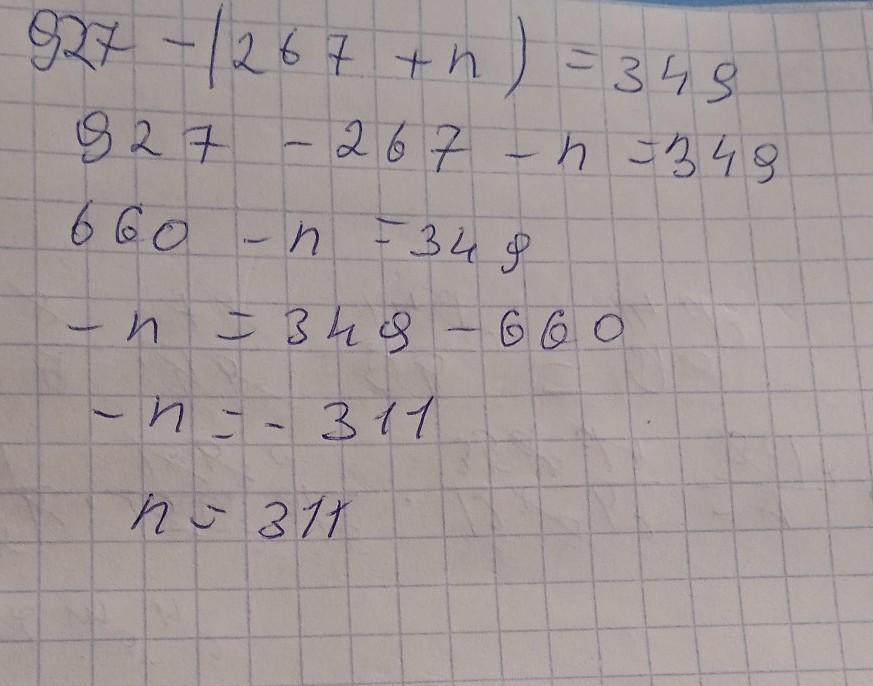 927 - (267 + n) = 349
927 - 267 - n = 349
660 - n = 349
- n = 349 - 660
- n = - 311
n = 311